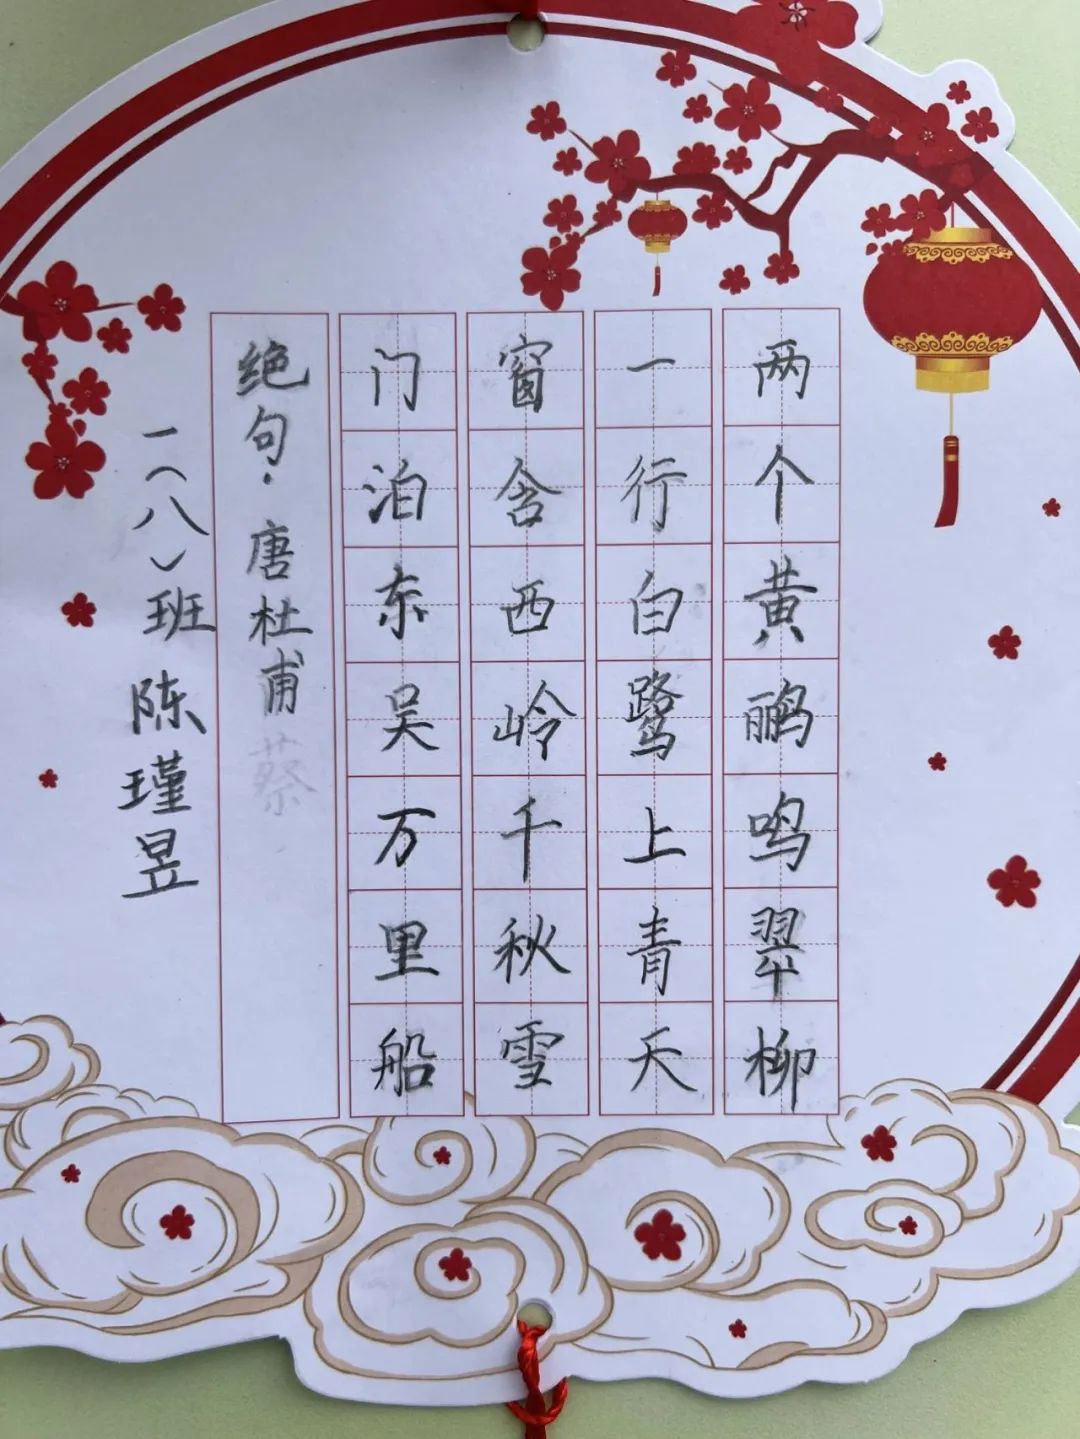 两个黄鹂鸣翠柳
一行白鹭上青天
窗含西岭千秋雪
门泊东吴万里船
绝句·唐杜甫
一(八)班 陈瑾昱